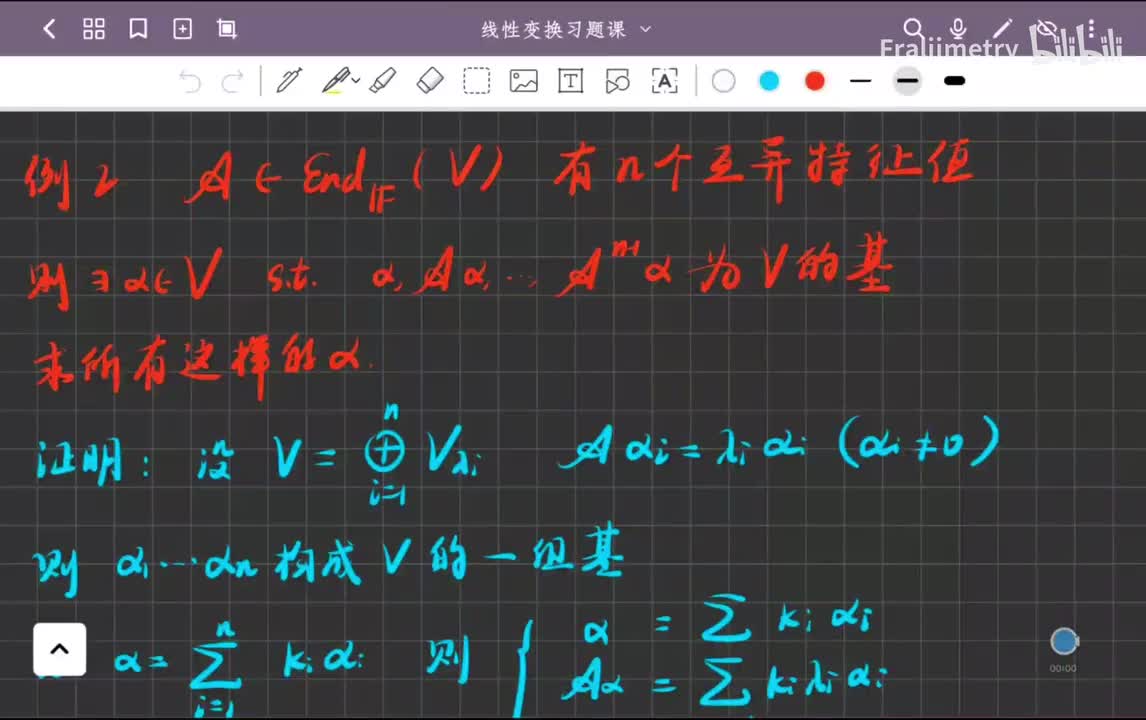 线性变换习题课
Fraliimetry bilibili
例2 𝒜 ∈ End_𝔽 (V) 有n个互异特征值
则 ∃ α ∈ V s.t. α, 𝒜α, … 𝒜ⁿ⁻¹α 为 V 的基
求所有这样的 α.
证明: 设 V = ⊕ᵢ₌₁ⁿ V_λᵢ 𝒜αᵢ = λᵢαᵢ (αᵢ ≠ 0)
则 α₁…αₙ 构成 V 的一组基
α = ∑ᵢ₌₁ⁿ kᵢαᵢ 则 { α = ∑ kᵢαᵢ
𝒜α = ∑ kᵢλᵢαᵢ
00:00